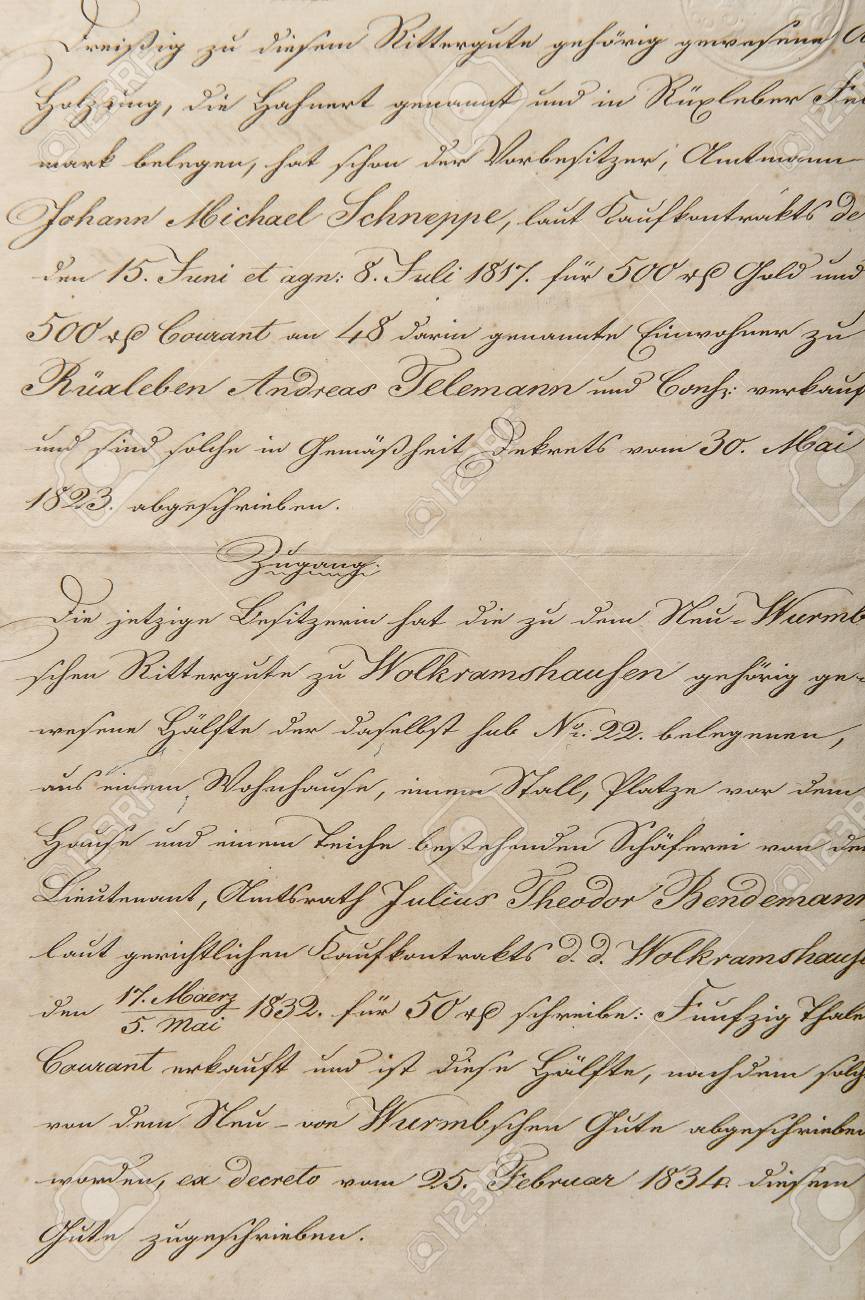 Dreißig zu diesem Rittergute gehörig gewesene
Holzung, die Hahnert genannt und in Rüxleber
mark belegen, hat schon der Vorbesitzer, Amtmann
Johann Michael Schneppe, laut Kaufkontrakts de
den 15. Juni et agn: 8. Juli 1817. für 500 rß Gold und
500 rß Courant an 48 darin genannte Einwohner zu
Rüxleben Andreas Telemann und Cons: verkauf
und sind solche in Gemäßheit Dekrets vom 30. Mai
1823. abgeschrieben.
Zugang.
Die jetzige Besitzerin hat die zu dem Neu-Wurmb
schen Rittergute zu Wolkramshausen gehörig ge-
wesene Hälfte der daselbst sub No: 22. belegenen,
aus einem Wohnhause, einem Stall, Platze vor dem
Hause und einem Teiche bestehenden Schäferei von de
Lieutenant, Amtsrath Julius Theodor Bendemann
laut gerichtlichen Kaufkontrakts d. d. Wolkramshause
den 17. Maerz / 5. Mai 1832. für 50 rß schreibe: Funfzig Thale
Courant erkauft und ist diese Hälfte, nachdem solch
von dem Neu-von Wurmbschen Gute abgeschrieben
worden, ex decreto vom 25. Februar 1834. diesem
Gute zugeschrieben.
123RF